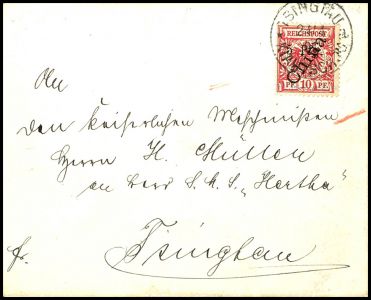 TSINGTAU
REICHSPOST
China
PF 10 PF
An
den Kaiserlichen Maschinisten
Herrn H. Müller
an Bord S. M. S. „Hertha"
Tsingtau
fr.